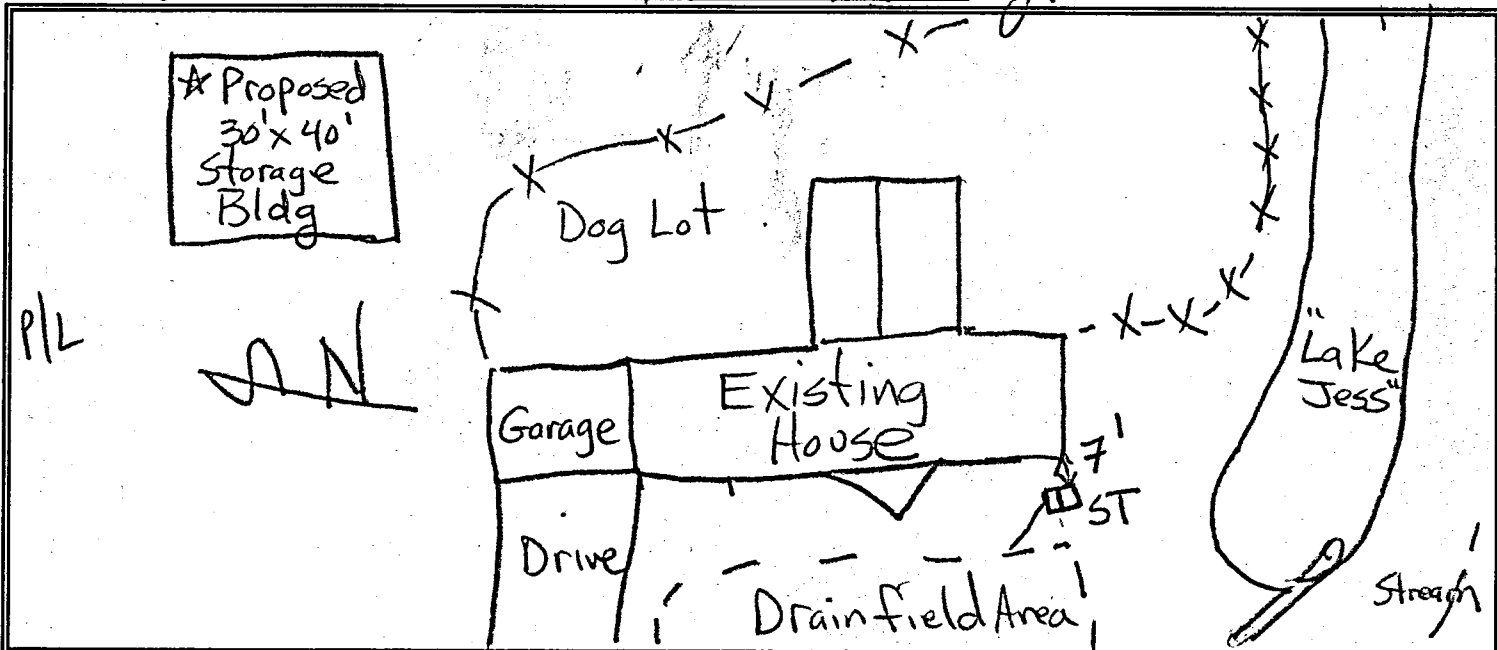 ☆ Proposed
30' x 40'
Storage
Bldg
Dog Lot
P/L
N
"Lake
Jess"
Existing
House
Garage
7'
ST
Drive
Drainfield Area
Stream